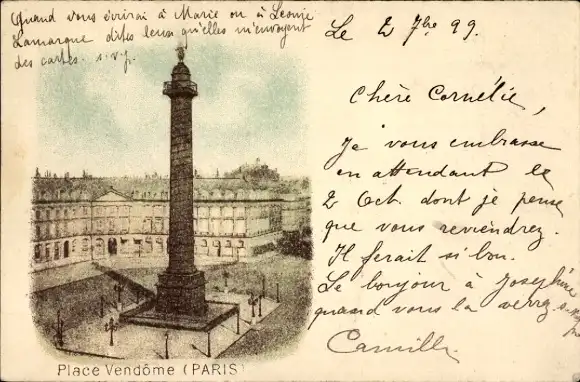 Quand vous écrirai à Marie ou à Léonie
Lamarque dites leur qu'elles m'envoyent
des cartes. s.v.p.
Le 2 7bre 99.
Chère Cornélie,
Je vous embrasse
en attendant le
2 Oct. dont je pense
que vous reviendrez.
Il ferait si bon.
Le bonjour à Joséphine
quand vous la verrez
Camille
Place Vendôme (PARIS)